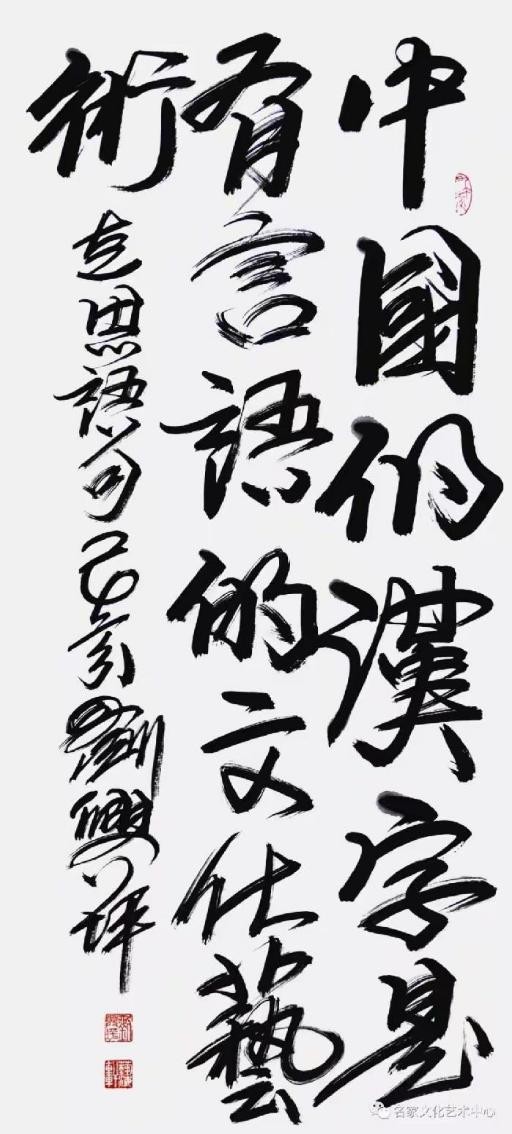 中國的漢字是
有言語的文化藝
術
思語句己亥劉興
名家文化艺术中心